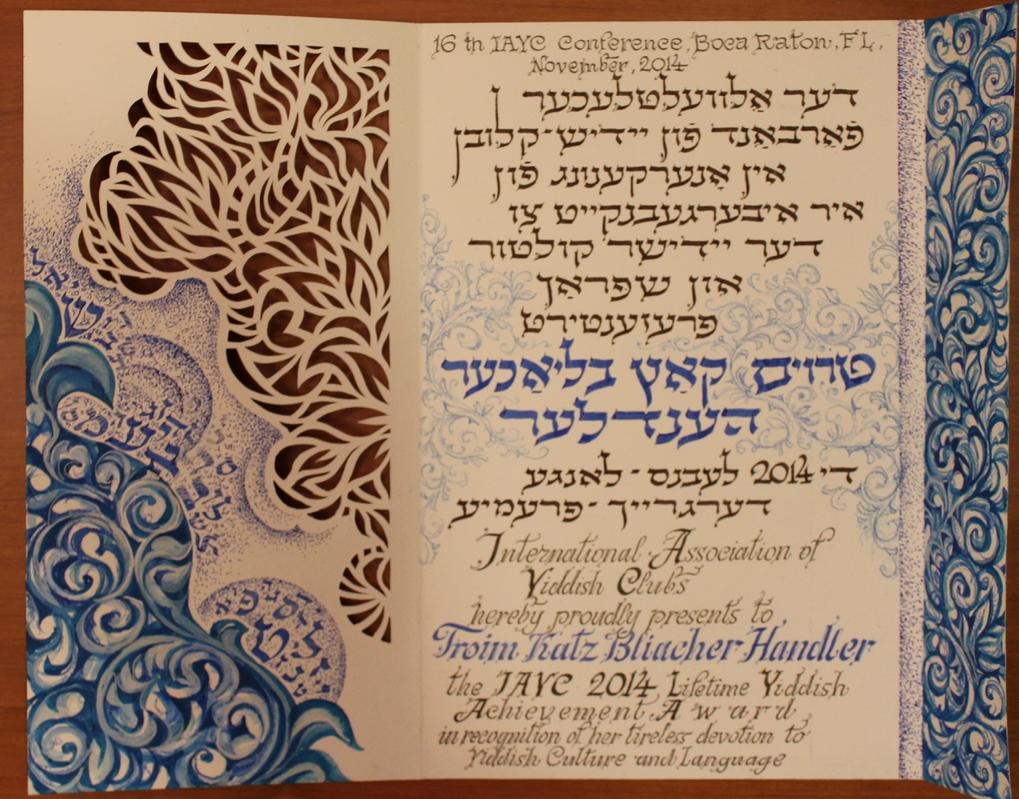 16 th IAYC Conference, Boca Raton, FL,
November, 2014
דער אַלוועלטלעכער
פֿאַרבאַנד פֿון ייִדיש־קלובן
אין אָנערקענונג פֿון
איר איבערגעבנקייט צו
דער ייִדישר קולטור
און שפּראַך
פּרעזענטירט
טרוים קאַץ בליאַכער
הענדלער
די 2014 לעבנס־לאַנגע
דערגרייך־פּרעמיע
International Association of
Yiddish Clubs
hereby proudly presents to
Troim Katz Bliacher Handler
the IAYC 2014, Lifetime Yiddish
Achievement Award
in recognition of her tireless devotion to
Yiddish Culture and Language